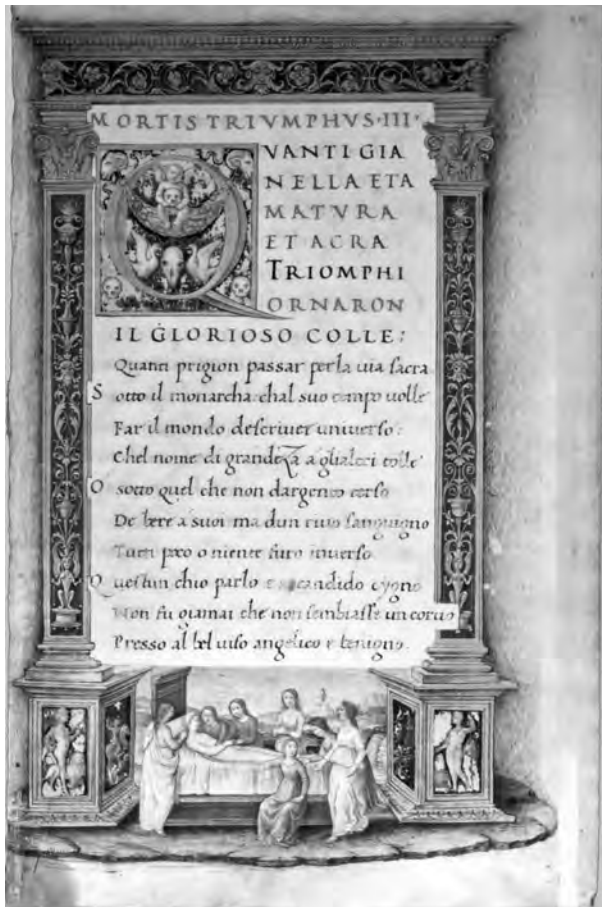 MORTIS TRIVMPHVS·III·
QVANTI GIA
NELLA ETA
MATVRA
ET ACRA
TRIOMPHI
ORNARON
IL GLORIOSO COLLE:
Quanti prigion passar per la uia sacra
Sotto il monarcha chal suo tempo uolle
Far il mondo descriuer uniuerso:
Chel nome di grandeza a glialtri tolle
O sotto quel che non dargento terso
De bere a suoi ma dun riuo sanguigno
Tutti poco o niente furo inuerso
Questun chio parlo e candido cygno
Non fu giamai che non sembiasse un coruo
Presso al bel uiso angelico e benigno.